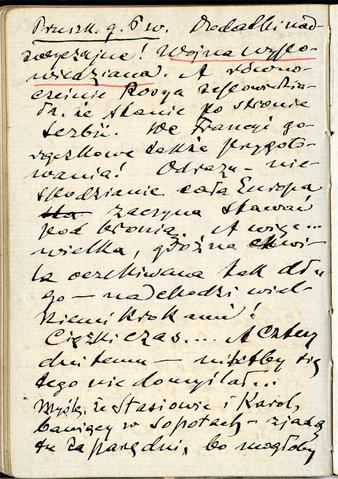 Pruszk. g. 6 w. Dodatki nad-
zwyczajne! Wojna wypo-
wiedziana. A równo-
cześnie Rosya zapowiedzia-
ła, że stanie po stronie
Serbii. We Francyi go-
rączkowe także przygoto-
wania! Odrazu – nie-
spodzianie cała Europa
zaczyna stawać
pod bronią. A więc...
wielka, groźna chwi-
la oczekiwana tak dłu
go – nadchodzi wiel-
kiemi krokami!
Ciężki czas.... A cztery
dni temu – niktby się
tego nie domyślał...
Myślę, że Stasiowie i Karol,
bawiący w Sopotach – zjadą
tu za parę dni, bo mogłoby